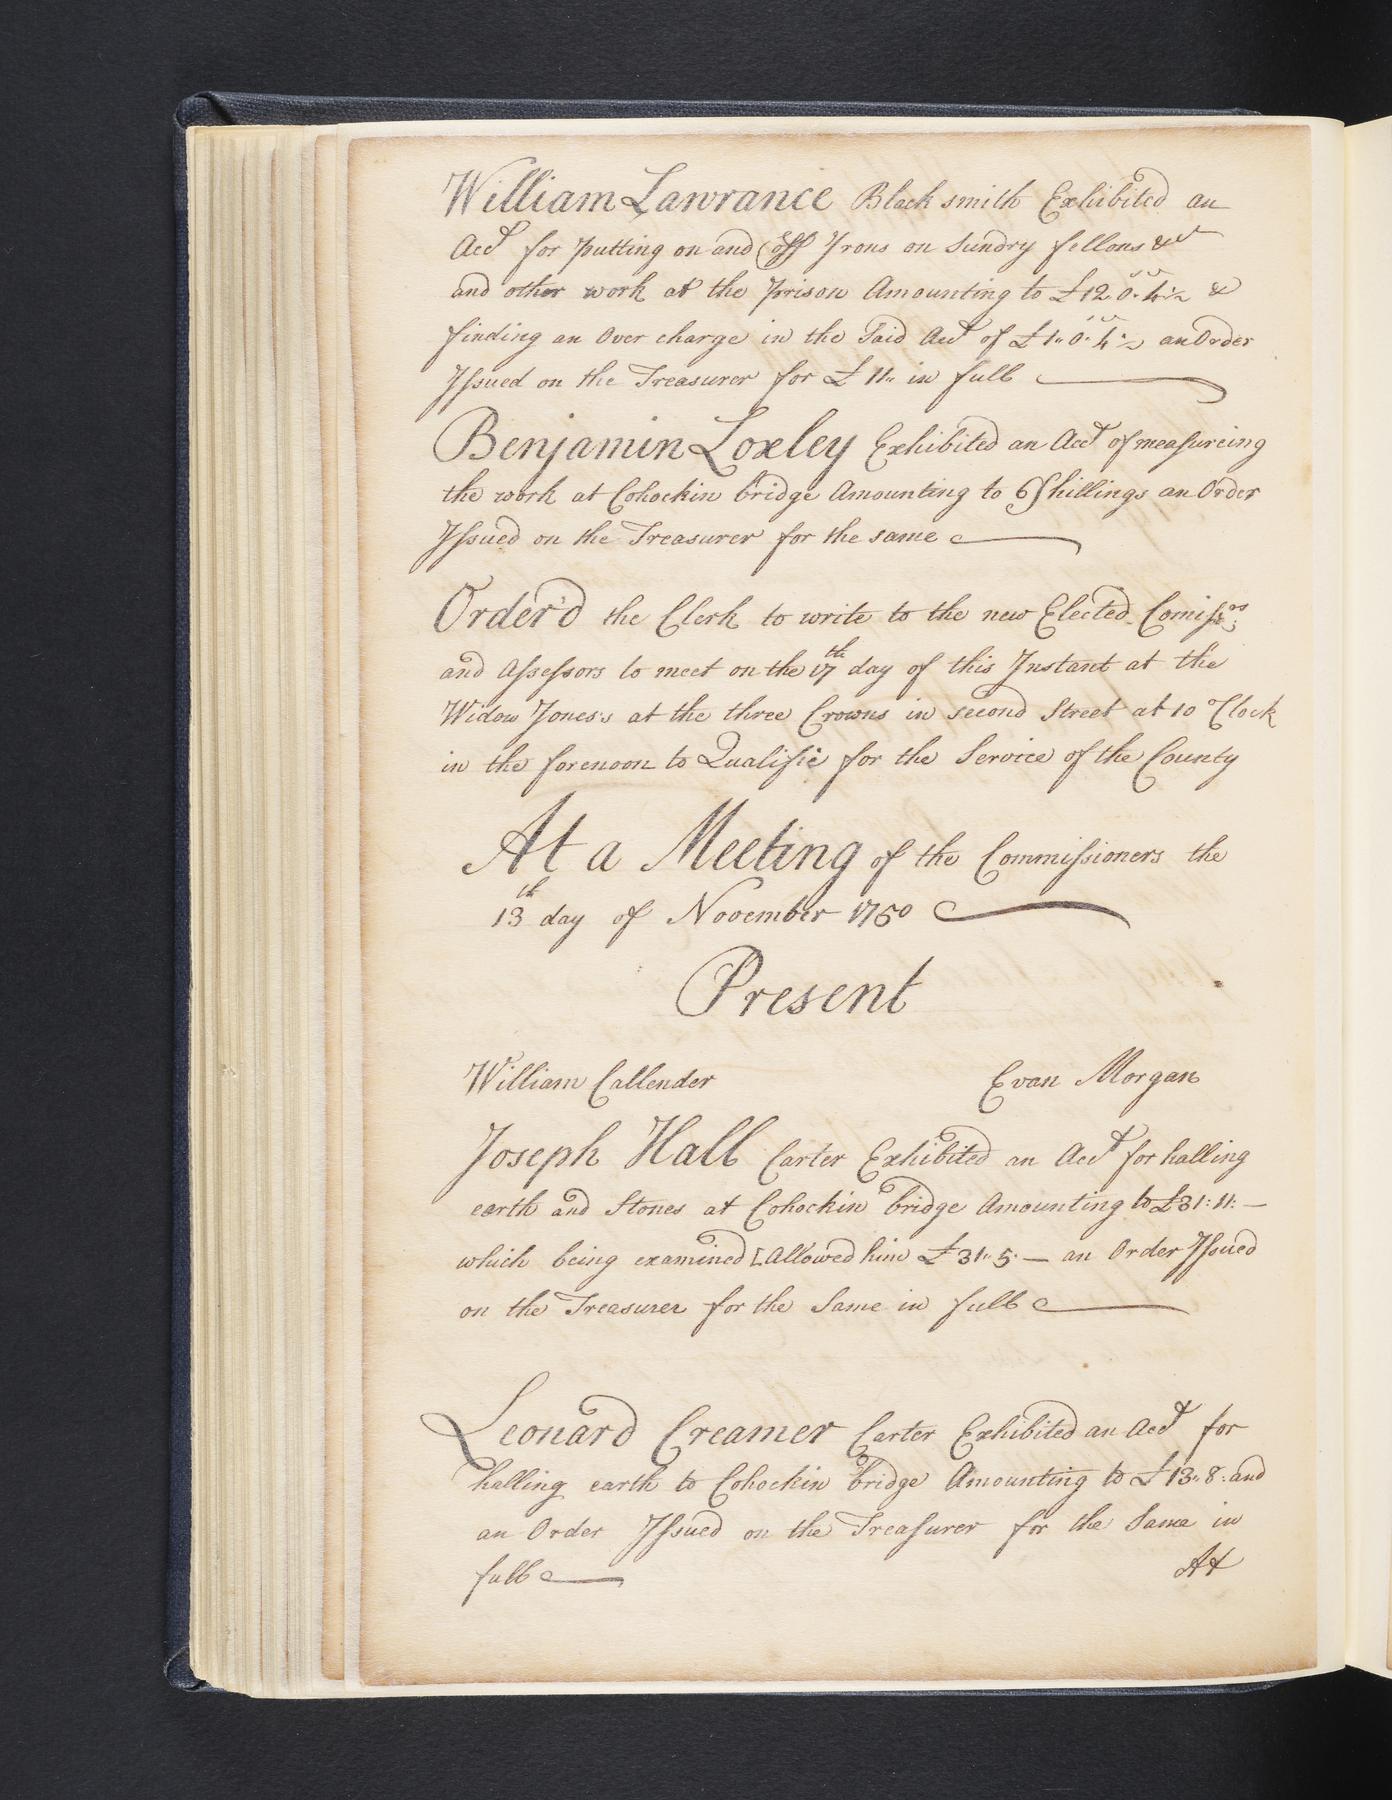 William Lawrance Black smith Exhibited an
Acct for putting on and off Irons on Sundry fellons &ct
and other work at the prison Amounting to £12. 0. 4½ &
finding an Over charge in the Said Acct of £1.. 0. 4½ an Order
Issued on the Treasurer for £ 11.. in full
Benjamin Loxley Exhibited an Acct of measureing
the work at Cohockin bridge Amounting to 6 Shillings an Order
Issued on the Treasurer for the same
Order'd the Clerk to write to the new Elected Comissrs
and Assessors to meet on the 17th day of this Instant at the
Widow Jones's at the three Crowns in second Street at 10 oClock
in the forenoon to Qualifie for the Service of the County
At a Meeting of the Commissioners the
13th day of November 1750
Present
William Callender Evan Morgan
Joseph Hall Carter Exhibited an Acct for halling
earth and Stones at Cohockin bridge Amounting to £31: 11: —
which being examined [Allowed him £31.. 5. — an Order Issued
on the Treasurer for the Same in full
Leonard Creamer Carter Exhibited an Acct for
halling earth to Cohockin bridge Amounting to £13.. 8: and
an Order Issued on the Treasurer for the Same in
full
At